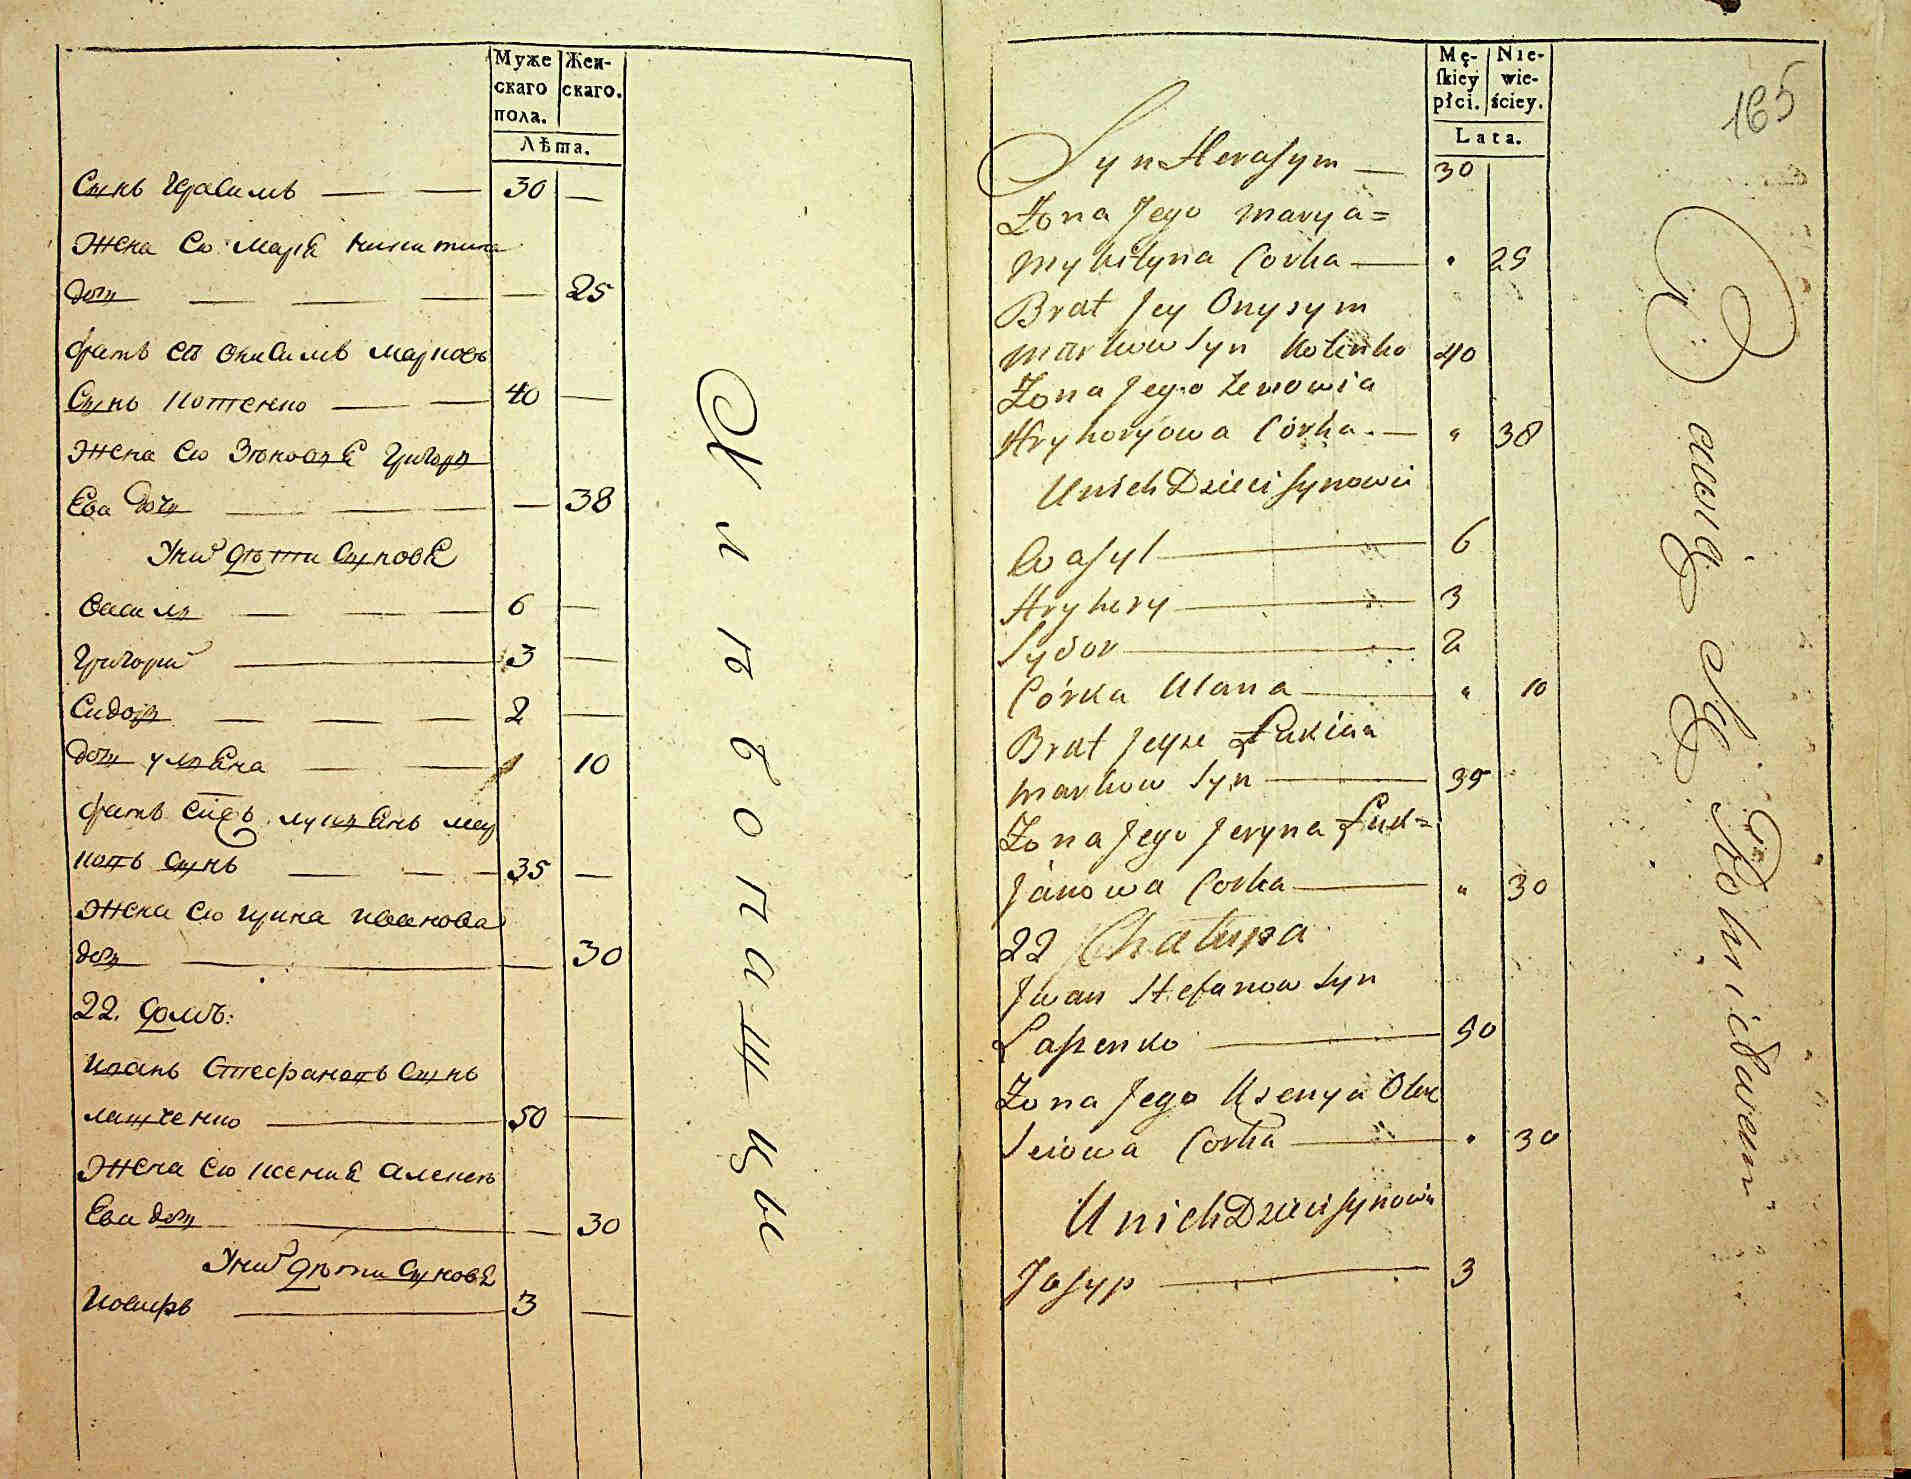 Муже скаго пола.
Жен- скаго.
Лѣта.
Сынъ Герасимъ 30
Жена Его Марія Никитина
дочь 25
братъ Ея Онисимъ Марковъ
Сынъ Котенко 40
Жена Его Зѣновія Григорь
Ева дочь 38
У них дѣти Сыновя
Василь 6
Григорий 3
Сидоръ 2
дочь Уляна 10
братъ лукянъ Мар
ковъ Сынъ 35
Жена Его Ирина Иванова
дочь 30
22. домъ:
Иванъ Стефановъ Сынъ
лащенко 50
Жена Его Ксения Алексѣ
Ева дочь 30
У них дѣти Сыновя
Иосифъ 3
Хлѣбопашцы
Mę- ſkiey płci.
Nie- wie- ściey.
Lata.
165
Syn Herasym 30
Żona Jego Marya=
Mykityna Corka 25
Brat Jey Onysym
Markow Syn Kotenko 40
Żona Jego Zenowia
Hryhoryowa Córka 38
U nich Dzieci Synowie
Wasyl 6
Hryhory 3
Sydor 2
Córka Ulana 10
Brat Jeyże Łukian
Markow Syn 35
Żona Jego Jeryna Łuk=
janowa Corka 30
22 Chałupa
Jwan Stefanow Syn
Laszenko 50
Żona Jego Ksenya Olex
Seiowa Corka 30
U nich Dzieci Synowie
Josyp 3
Bawią Się Rolnictwem